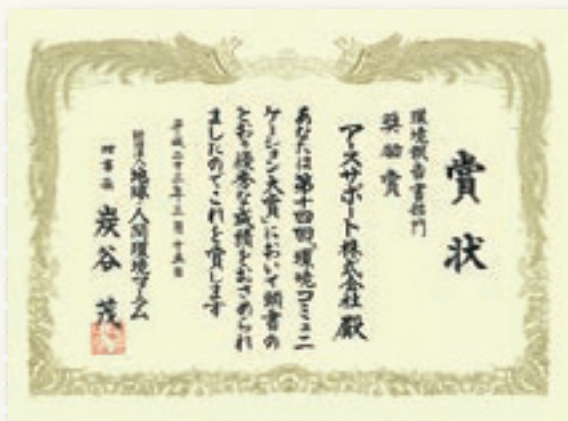 賞状
環境報告書部門
奨励賞
アースサポート株式会社 殿
あなたは第十四回「環境コミュニ
ケーション大賞」において頭書の
とおり優秀な成績をおさめられ
ましたのでこれを賞します
平成二十三年二月十五日
財団法人 地球・人間環境フォーラム
理事長 炭谷 茂